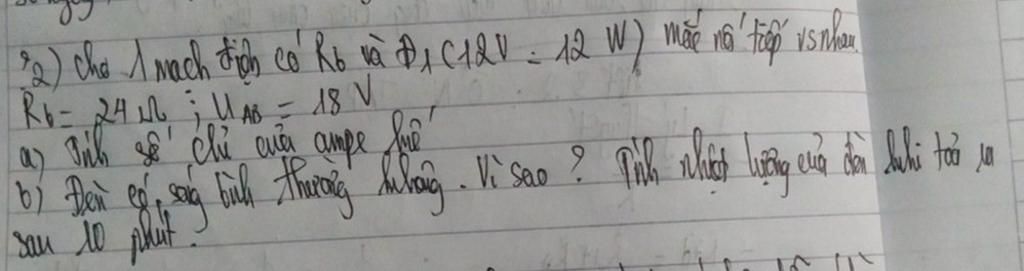 2) Cho 1 mach điện có Rb và Đ1 (12V - 12 W) mắc nối tiếp vs nhau.
Rb = 24 Ω ; UAB = 18 V
a) Tính số chỉ của ampe kế
b) Đèn có sáng bình thường không. Vì sao ? Tính nhiệt lượng của đèn khi toả ra
sau 10 phút.